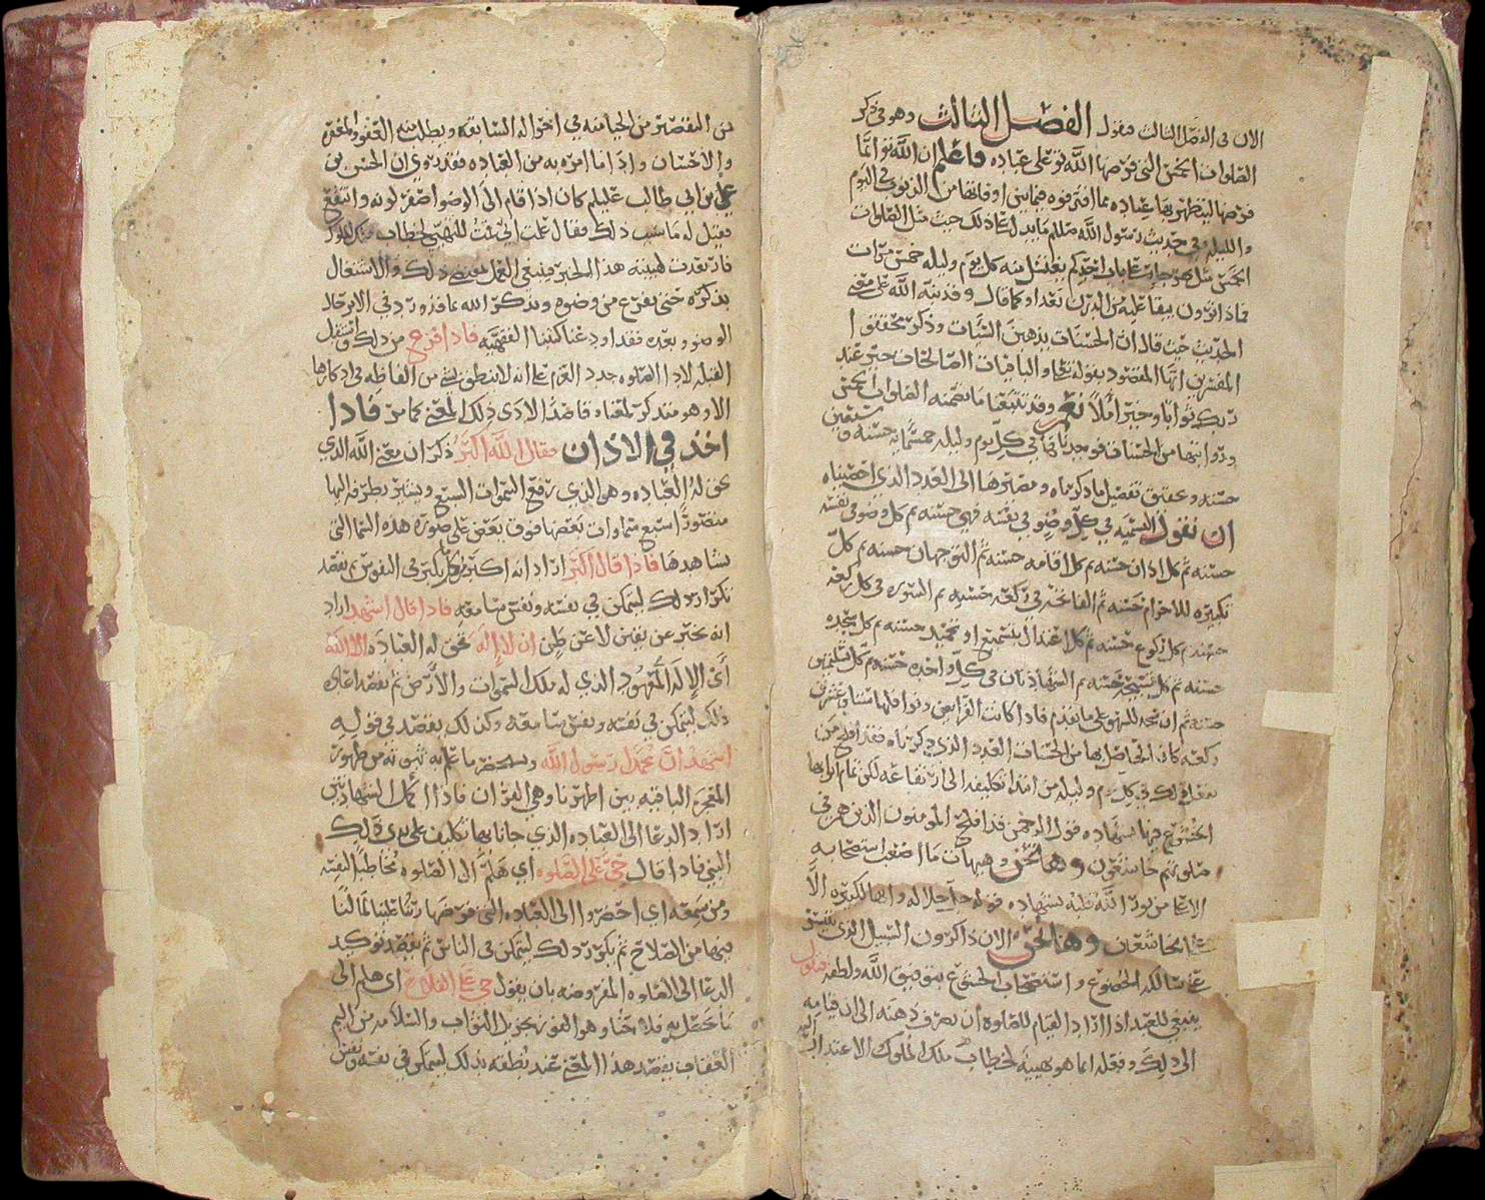 الان في الفصل الثالث فنقول الفصل الثالث وهو في ذكر
الصلوات الخمس التي فرضها الله تع على عباده فاعلم ان الله تع انما
فرضها ليتطهر بها عباده مما اقترفوه فيما بين اوقاتها من الذنوب في اليوم
والليله وفي حديث رسول الله صللم ما يدل على ذلك حيث مثل الصلوات
الخمس مثل نهر جار على باب احدكم يغتسل منه كل يوم وليله خمس مرات
فماذا ترون يبقا عليه من الدرن بعد او كما قال وقد نبه الله على معنى
الحديث حيث قال ان الحسنات يذهبن السيئات وذكر محققوا
المفسرين انها المقصود بقوله تعا والباقيات الصالحات خير عند
ربك ثوابا وخير أملا نعم وقد تتبعنا ما تضمنه الصلوات الخمس
ورواتبها من الحسنات فوجدنا في كل يوم وليله خمسمايه حسنه و
حسنه وتفصيل ما ذكرناه ومصيرها الى العدد الذي احصيناه
ان نقول التسميه في كل وضو في نفسه فهي حسنه ثم كل وضو في نفسه
حسنه ثم كل اذان حسنه ثم كل اقامه حسنه ثم التوجهان حسنه ثم كل
تكبيره للاحرام حسنه ثم الفاتحه في ركعه حسنه ثم السوره في كل ركعه
حسنه ثم كل ركوع حسنه ثم كل اعتدال بتسميع او تحميد حسنه ثم كل سجده
حسنه ثم كل تسبيح حسنه ثم الشهادتان في كل واحده حسنه ثم كل تسليمتين
حسنه ثم ان على ما تقدم فاذا كانت الفرايض ونوافلها ستا وعشرين
ركعه كان الحاصل بها من الحسنات العدد الذي ذكرناه فقد افلح من
فعل ذلك في كل يوم وليله من ابتدا تكليفه الى ارتفاعه لكن تمام ثوابها
الخشوع فيها بشهاده قول الرحمن قد افلح المومنون الذين هم في
صلوتهم خاشعون وها نحن وهيهات ما اصعب استصحابه
الا على من نور الله قلبه بشهاده قوله جل جلاله وانها لكبيره الا
على الخاشعين وها نحن الان ذاكرون السبيل الذي يقتبس
على سالكه الخضوع واستصحاب الخشوع بتوفيق الله ولطفه فنقول
ينبغي للعبد اذا اراد القيام للصلوه أن يصرف ذهنه الى ان قيامه
الى ذلك وفعله انما هو تهيئه لخطاب ملك الملوك الاعتذار اليه
من التقصير من الخيانه في احواله السابقه ويطلب منه العفو والمغفره
والاحسان واذا ما امره به من العباده فقد روي ان الحسن بن
علي بن ابي طالب عليلم كان اذا قام الى الوضو اصفر لونه وانتقع
فقيل له ما سبب ذلك فقال علمت اني قمت للتهيئ لخطاب ملك الملوك
فارتعدت لهيبته هذا الخبر فينبغي العمل بمقتضى ذلك والاشتغال
بفكره حتى يفرغ من وضوه ويذكر الله بما قد ورد في الاثر حال
الوضو وبعده فقد اودعنا كتبنا الفقهيه فاذا فرغ من ذلك واستقبل
القبله لادا الصلوه جدد العزم على انه لا ينطق بشي من الفاظه في اذكارها
الا وهو متذكر لمعناه قاصدا لاداء ذلك المعنى كما مر فاذا
اخذ في الاذان فقال الله اكبر ذكر ان معنى الله الذي
تحق له العباده وهو الذي رفع السموات السبع ويشير بطرفه اليها
متصورا سبع سماوات بعضها فوق بعض على صوره هذه السما التي
نشاهدها فاذا قال اكبر اراد انه اكبر من كل كبير في النفوس ثم يقصد
تكرار ذلك ليتمكن في نفسه ونفس سامعه فاذا قال اشهد اراد
انه يخبر عن يقين لا عن ظن ان لا إله تحق له العباده الا الله
أي الإله المعهود الذي له ملك السموات والأرض ثم يقصد اعاده
ذلك ليتمكن في نفسه ونفس سامعه وكذلك يقصد في قوله
اشهد ان محمدا رسول الله ويستحضر ما علم به ثبوته من ظهور
المعجزه الباقيه بين اظهرنا وهي القران فاذا اكمل الشهادتين
اراد الدعا الى العباده الذي جانا بها تكليف على يدي ذلك
النبي فاذا قال حي على الصلوه أي هلم الى الصلوه مخاطبا لنفسه
ومن سمعه اي احضروا الى العباده التي فرضها ربنا علينا لما لنا
فيها من الصلاح ثم يكرر ذلك ليتمكن في الناس ثم يقصد توكيد
الدعا الى الصلوه المفروضه بان يقول حي على الفلاح اي هلم الى
ما تحصل به فلاحنا وهو الفوز بجزيل الثواب والسلامه من اليم
العقاب يقصد هذا المعنى عند نطقه بذلك ليتمكن في نفسه ونفس